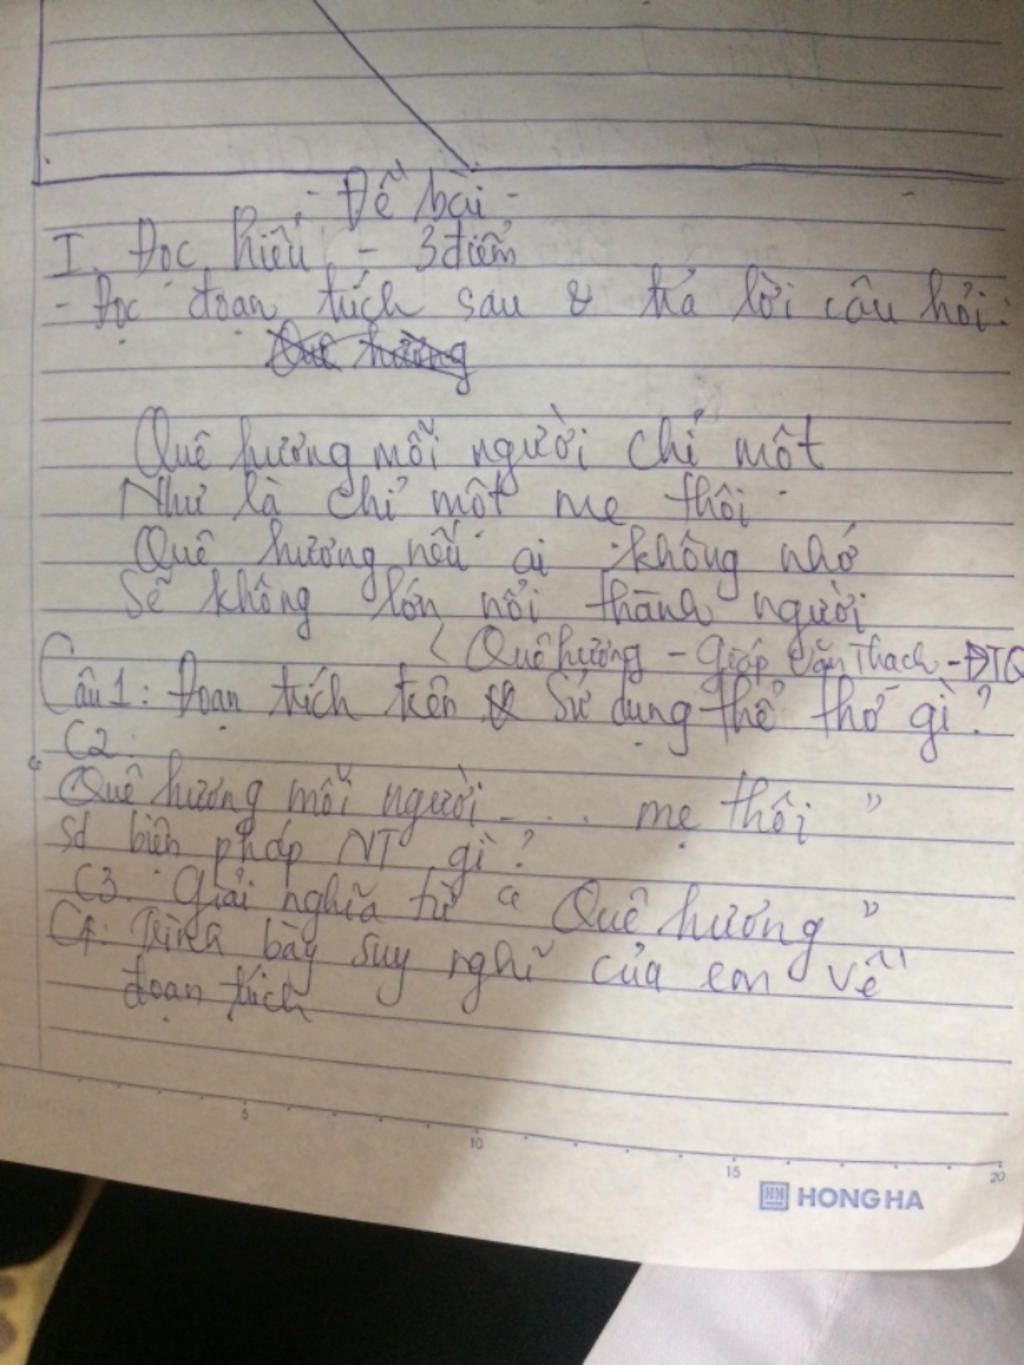 - Đề bài -
I. Đọc hiểu - 3 điểm
- Đọc đoạn trích sau & trả lời câu hỏi:
Quê hương
Quê hương mỗi người chỉ một
Như là chỉ một mẹ thôi
Quê hương nếu ai không nhớ
Sẽ không lớn nổi thành người
( Quê hương - Giáp Văn Thạch - ĐTQ
Câu 1: Đoạn trích trên sử dụng thể thơ gì?
C2:
"Quê hương mỗi người - . . . mẹ thôi "
sd biện pháp NT gì?
C3. Giải nghĩa từ " Quê hương "
C4: Trình bày suy nghĩ của em về
đoạn trích
5
10
15
20
HH HONG HA